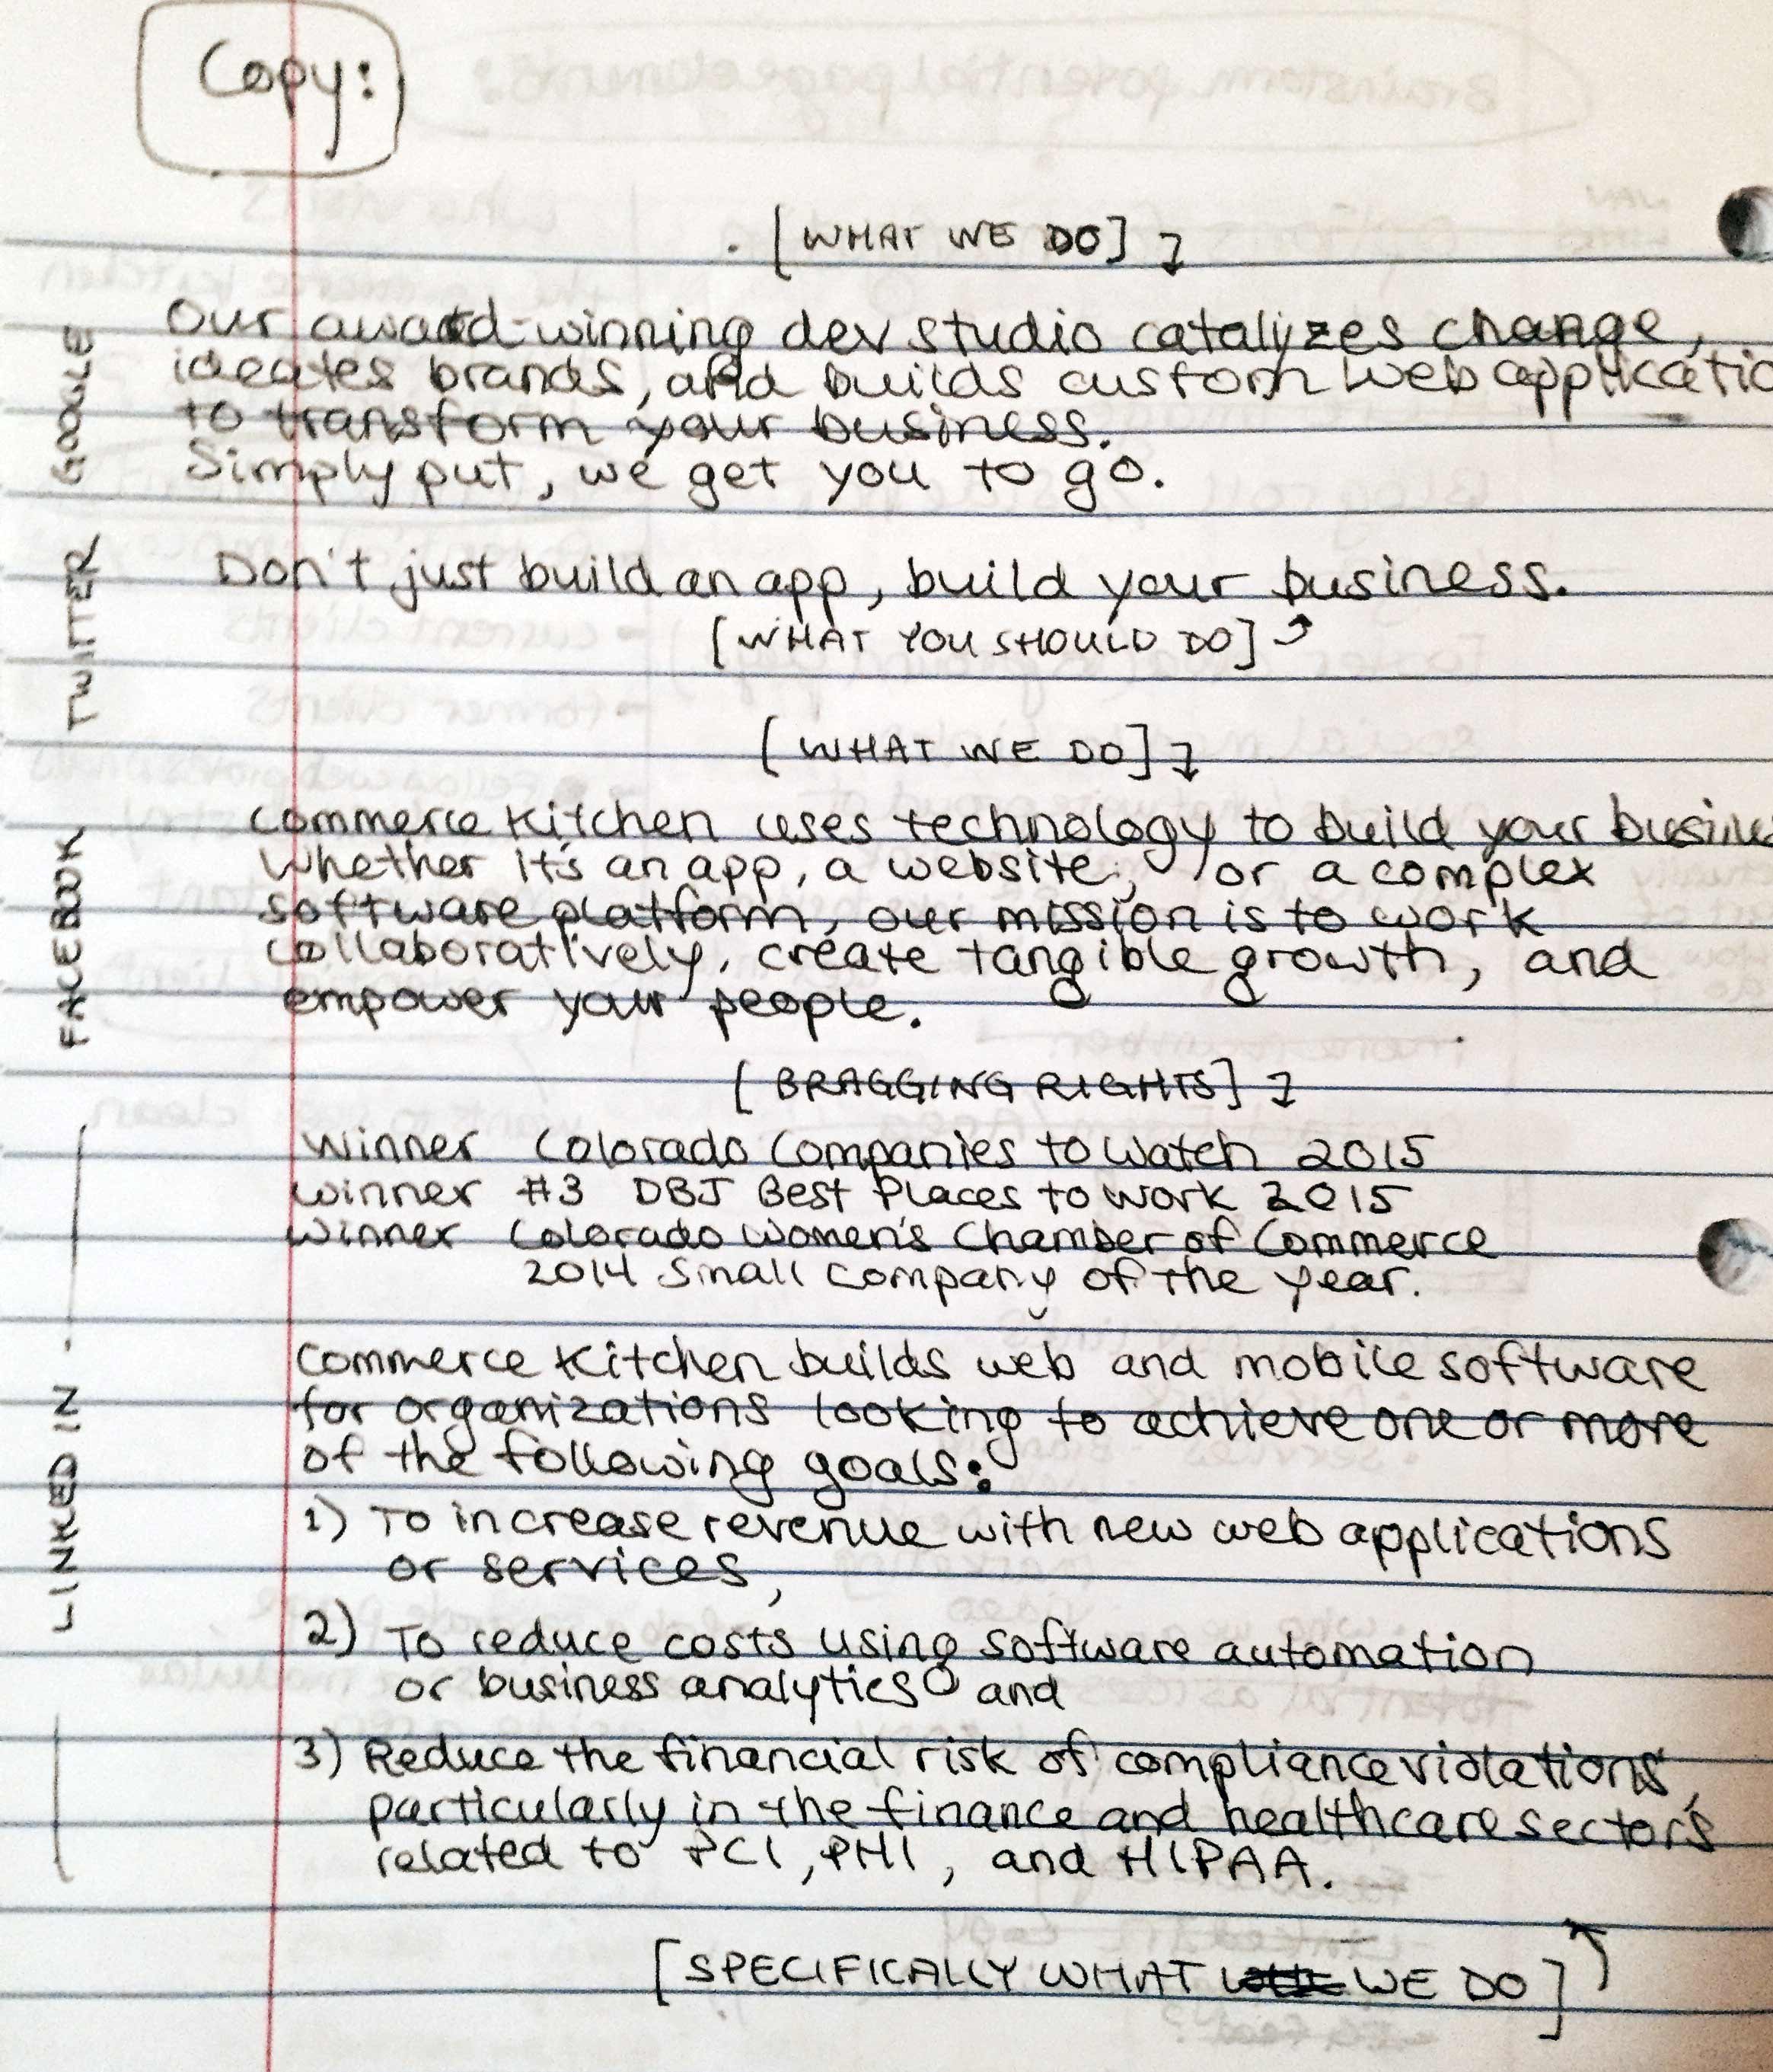 Copy:
[WHAT WE DO]
GOOGLE
Our award-winning dev studio catalyzes change,
ideates brands, and builds custom web applicatio
to transform your business.
Simply put, we get you to go.
TWITTER
Don't just build an app, build your business.
[WHAT YOU SHOULD DO]
[WHAT WE DO]
FACEBOOK
Commerce Kitchen uses technology to build your busine
Whether it's an app, a website, or a complex
software platform, our mission is to work
collaboratively, create tangible growth, and
empower your people.
[BRAGGING RIGHTS]
LINKED IN
Winner Colorado Companies to Watch 2015
Winner #3 DBJ Best Places to Work 2015
Winner Colorado Women's Chamber of Commerce
2014 Small Company of the Year.
Commerce Kitchen builds web and mobile software
for organizations looking to achieve one or more
of the following goals:
1) To increase revenue with new web applications
or services,
2) To reduce costs using software automation
or business analytics and
3) Reduce the financial risk of compliance violations,
particularly in the finance and healthcare sectors
related to PCI, PHI, and HIPAA.
[SPECIFICALLY WHAT WE DO]